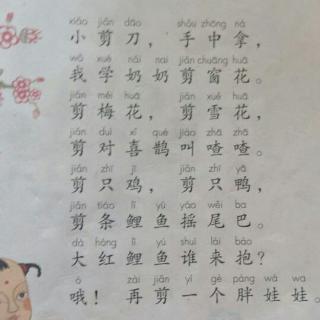 xiǎo jiǎn dāo shǒu zhōng ná
小剪刀，手中拿，
wǒ xué nǎi nai jiǎn chuāng huā
我学奶奶剪窗花。
jiǎn méi huā jiǎn xuě huā
剪梅花，剪雪花，
jiǎn duì xǐ què jiào zhā zhā
剪对喜鹊叫喳喳。
jiǎn zhī jī jiǎn zhī yā
剪只鸡，剪只鸭，
jiǎn tiáo lǐ yú yáo wěi ba
剪条鲤鱼摇尾巴。
dà hóng lǐ yú shuí lái bào
大红鲤鱼谁来抱？
ò zài jiǎn yí gè pàng wá wa
哦！再剪一个胖娃娃。